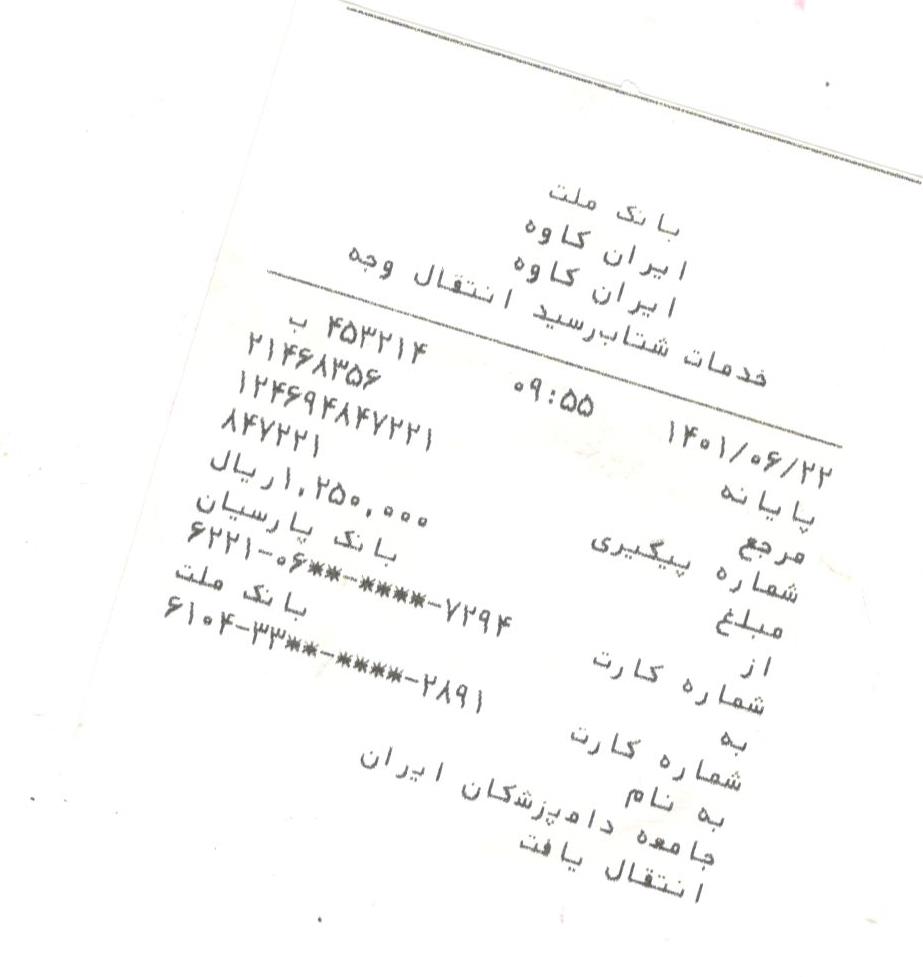 بانک ملت
ایران کاوه
ایران کاوه
خدمات شتاب‌رسید انتقال وجه
۱۴۰۱/۰۶/۲۲ ۰۹:۵۵ ۴۵۳۲۱۴ ب
پایانه ۲۱۴۶۸۳۵۶
مرجع ۱۲۴۶۹۴۸۴۷۲۲۱
شماره پیگیری ۸۴۷۲۲۱
مبلغ ۱,۲۵۰,۰۰۰ریال
از بانک پارسیان
شماره کارت ۶۲۲۱-۰۶**-****-۷۲۹۴
به بانک ملت
شماره کارت ۶۱۰۴-۳۳**-****-۲۸۹۱
به نام
جامعه دامپزشکان ایران
انتقال یافت